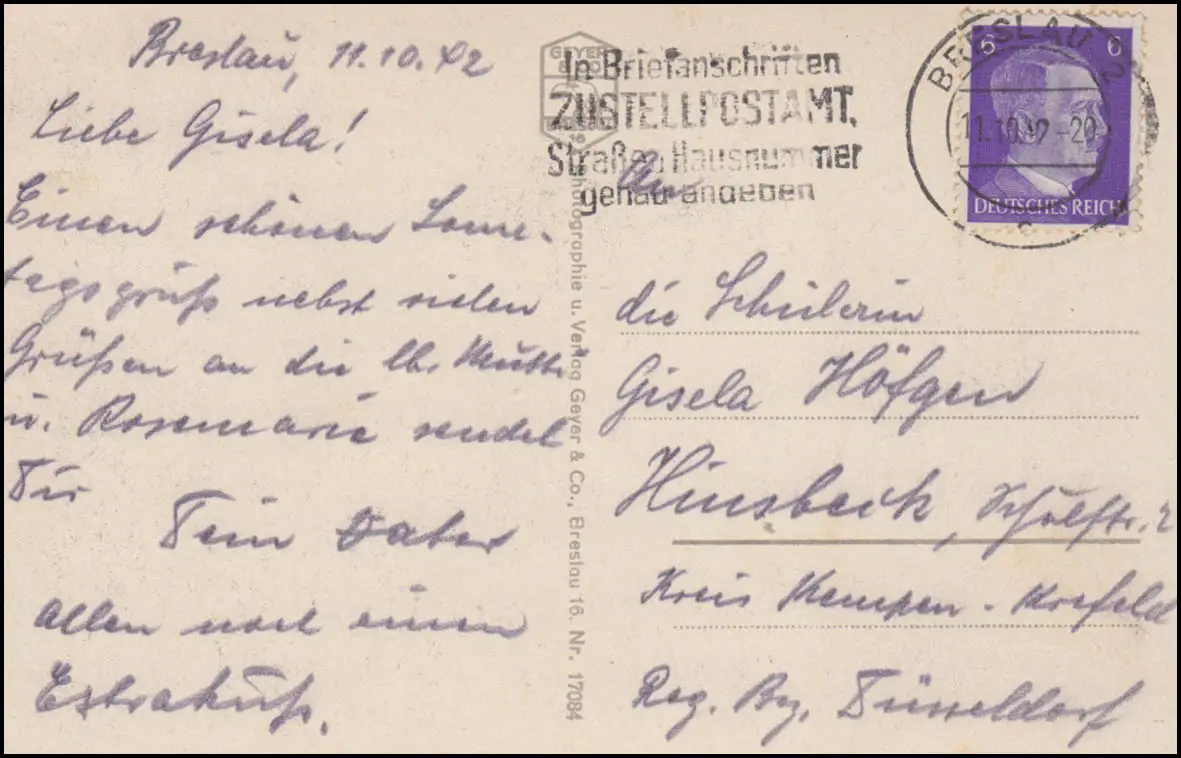 Breslau, 11.10.42
Liebe Gisela!
Einen schönen Sonn-
tagsgruß nebst vielen
Grüßen an die lb. Mutti
u. Rosemarie sendet
Dir
Dein Vater
Allen noch einen
Extrakuß.
GEYER
& CO
Photographie u. Verlag Geyer & Co., Breslau 16. Nr. 17084
In Briefanschriften
ZUSTELLPOSTAMT,
Straße u Hausnummer
genau angeben
BRESLAU 2
11.10.42-20
6 6
DEUTSCHES REICH
An
die Schülerin
Gisela Höfgen
Hinsbeck, Schulstr. 2
Kreis Kempen-Krefeld
Reg. Bez. Düsseldorf